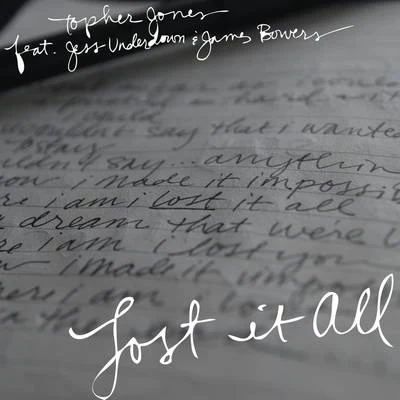 topher Jones
feat. Jess Underdown & James Bowers
could
wouldn't say that i wanted
to stay
say... anything
i made it impossi
i am i lost it all
dream that were
i am i lost you
i made it
here i am
Lost it all